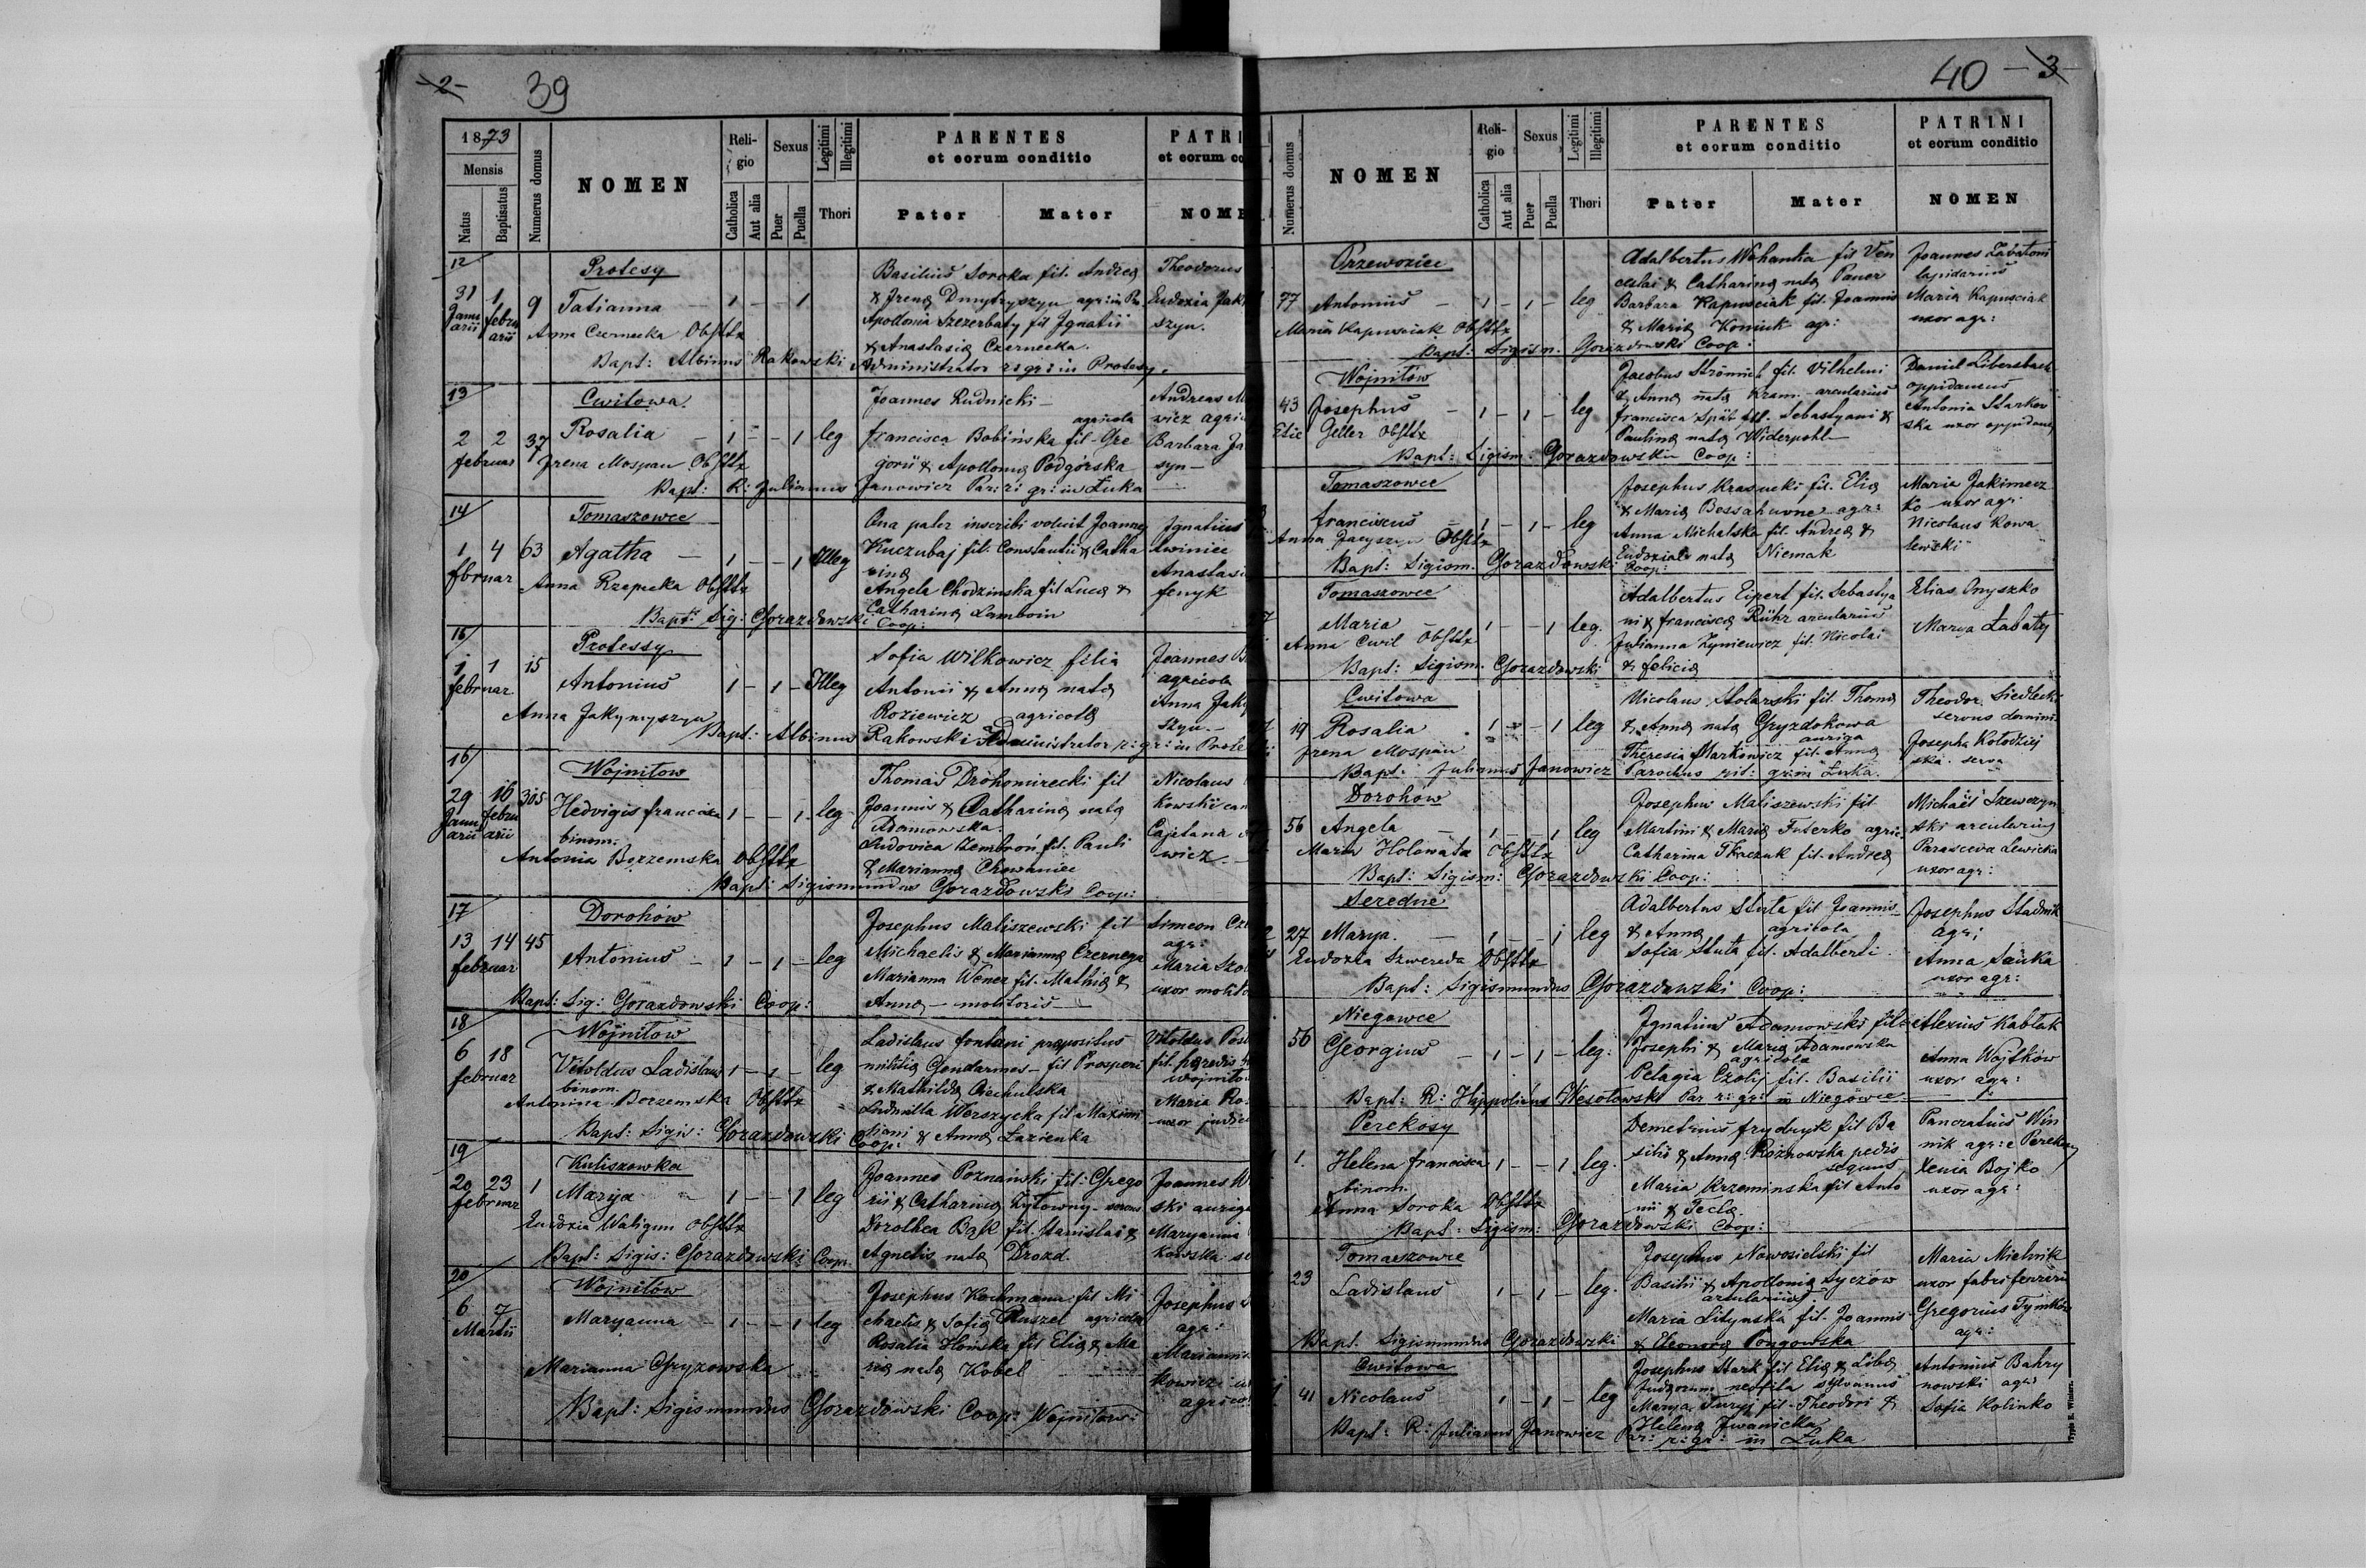 -2-
39
1873
Mensis
Natus
Baptisatus
Numerus domus
NOMEN
Reli-
gio
Catholica
Aut alia
Sexus
Puer
Puella
Legitimi
Illegitimi
Thori
PARENTES
et eorum conditio
Pater
Mater
PATRI
et eorum co
NOME
12
Protesy
31 1 9
Janu
arii
febru
arii
Tatianna - 1 - - 1
Anna Czernecka Obsttx
Bapt: Albinus Rakowski Administrator r: gr: in Protesy.
Basilius Soroka fil. Andreæ
& Irenæ Dmytryszyn agr: in Pro
Apollonia Szczerbaty fil Ignatii
& Anastasiæ Czernecka.
Theodorus
Eudoxia Jak
szyn.
13
Cwitowa
2 2 37
februar
Rosalia - 1 - - 1 leg
Irena Mospan Obsttx
Bapt: R: Julianus Janowicz Par: r: gr: in Łuka
Joannes Rudnicki -
agricola
francisca Bobińska fil- Gre
gorii & Apolloniæ Podgórska
Andreas M
wicz agri
Barbara Ja
syn -
14
Tomaszowce
1 4 63
februar
Agatha - 1 - - 1 Illeg
Anna Rzepecka Obsttx
Bapt: Sig: Gorazdowski Coop:
Qua pater inscribi voluit Joannes
Kuczubaj fil. Constantii & Catha
rinæ
Angela Chodzinska fil Lucæ &
Catharinæ Lamboin
Ignatius
lwiniec
Anastasi
fenyk
15
Protessy
1 1 15
februar
Antonius 1 - 1 - Illeg
Anna Jakymyszyn
Bapt: Albinus Rakowski Administrator r: gr: in Prote
Sofia Wilkowicz filia
Antonii & Annæ natæ
Roziewicz agricolæ
Joannes B
agricola
Anna Jaky
szyn -
16
Wojnitow
29 16 305
Janu
arii
febru
arii
Hedvigis francisca 1 - - 1 - leg
binom.
Antonia Berzemska Obsttx
Bapt: Sigismundus Gorazdowski Coop:
Thomas Drohomirecki fil
Joannis & Catharinæ natæ
Adamowska.
Ludovica Zembroń fil. Pauli
& Mariannæ Chowaniec
Nicolaus
kowski can
Cajetana
wicz -
17
Dorohów
13 14 45
februar
Antonius - 1 - 1 - leg
Bapt: Sig: Gorazdowski Coop:
Josephus Maliszewski fil
Michaelis & Mariannæ Czernega
Marianna Wener fil. Mathiæ &
Annæ - molitoris -
Simeon Cze
agr:
Maria Szo
uxor molito
18
Wojnitow
6 18
februar
Vitoldus Ladislaus 1 - 1 - leg
binom.
Antonina Borzemska Obsttx
Bapt: Sigis: Gorazdowski Coop:
Ladislaus fontani præpositus
militiæ Gendarmes - fil Prosperi
& Mathildæ Ciechulska
Ludmilla Werszycka fil Maximi
liani & Annæ Łazienka
Vitoldus Post
fil. hæredis
Wojnito
Maria Po
uxor judici
19
Kuliszowka
20 23 1
februar
Marya - 1 - - 1 leg
Eudoxia Waligun Obsttx
Bapt: Sigis: Gorazdowski Coop:
Joannes Poznański fil: Grego
rii & Catharinæ Zytowny - servus
Dorothea Bąk fil. Stanislai &
Agnetis natæ Drozd.
Joannes W
ski auriga
Maryanna
kowska se
20
Wojnitów
6 7
Martii
Maryanna - 1 - - 1 leg
Marianna Gryzowska
Bapt: Sigismundus Gorazdowski Coop: Wojnitow:
Josephus Kochmann fil Mi
chaelis & Sofiæ Kuszel agricola
Rosalia Homska fil Eliæ & Ma
riæ natæ Kobel
Josephus
agr:
Mariann
kowicz
agric
40
- 3 -
Numerus domus
NOMEN
Reli-
gio
Catholica
Aut alia
Sexus
Puer
Puella
Legitimi
Illegitimi
Thori
PARENTES
et eorum conditio
Pater
Mater
PATRINI
et eorum conditio
NOMEN
Przewoziec
77 Antonius - 1 - 1 - leg
Maria Kapusciak Obsttx
Bapt: Sigism. Gorazdowski Coop:
Adalbertus Wohanka fil Ven
ceslai & Catharinæ natæ Paner
Barbara Kapusciak fil. Joannis
& Mariæ Koniuk agr:
Joannes Zabatoni
lapidarius
Maria Kapusciak
uxor agr:
Wojnitów
43 Josephus - 1 - 1 - leg
Geller Obsttx
Bapt: Sigism. Gorazdowski Coop:
Jacobus Strömich fil. Vilhelmi
& Annæ natæ Kram- arcularius
francisca Spät fil. Sebastyani &
Paulinæ natæ Widerpohl-
Daniel Libersbach
oppidanus
Antonia Starkow
ska uxor oppidani
Tomaszowce
franciscus 1 - 1 - leg
Anna Obsttx
Bapt: Sigism. Gorazdowski Coop:
Josephus Krasucki fil. Eliæ
& Mariæ Bessahuvne agr:
Anna Michalska fil. Andreæ &
Eudoxiæ natæ Niemak
Maria Jakimecz
ko uxor agr:
Nicolaus Kowa
lewski
Tomaszowce
Maria - 1 - - 1 leg.
Anna Cwil Obsttx
Bapt: Sigism. Gorazdowski
Adalbertus Eipert fil. Sebastya
ni & franciscæ Rühr arcularius
Julianna Zyniewicz fil. Nicolai
& feliciæ
Elias Onyszko
Marya Łabaty
Cwitowa
19 Rosalia - 1 - - 1 leg
Irena Mospan
Bapt: Julianus Janowicz Parochus rit: gr: in Łuka.
Nicolaus Stolarski fil. Thomæ
& Annæ natæ Gryzdokowa
auriga
Theresia Markowicz fil. Annæ
Theodor Siedlecki
servus domini
Josepha Kołodziej
ska serva
Dorohów
56 Angela - 1 - - 1 leg
Maria Holowata Obsttx
Bapt: Sigism: Gorazdowski Coop:
Josephus Maliszewski fil
Martini & Mariæ Futerko agric
Catharina Tkaczuk fil. Andreæ
Michael Szewczyn
ski arcularius
Parasceva Lewicka
uxor agr:
Seredne
27 Marya - 1 - - 1 leg
Eudoxia Szwereda Obsttx
Bapt: Sigismundus Gorazdowski Coop:
Adalbertus Sluta fil Joannis
& Annæ agricola
Sofia Sluta fil. Adalberti
Josephus Stadnik
agr:
Anna Sauka
uxor agr:
Niegowce
56 Georgius - 1 - 1 - leg.
Bapt: R: Hippolitus Wesołowski Par r: gr: in Niegowce
Ignatius Adamowski fil:
Josephi & Mariæ Adamowska
agricola
Pelagia Czolij fil. Basilii
Alexius Kabłak
Anna Wojtków
uxor agr:
Perekosy
1. Helena francisca 1 - - 1 leg.
binom.
Anna Soroka Obsttx
Bapt: Sigism: Gorazdowski Coop:
Demetrius frydryk fil Ba
silii & Annæ Rożnowska pedis
sequus
Maria Krzeminska fil Anto
nii & Teclæ.
Pancratius Win
nik agr: e Perekosy
Xenia Bojko
uxor agr:
Tomaszowce
23 Ladislaus 1 - 1 - leg.
Bapt. Sigismundus Gorazdowski
Josephus Nowosielski fil
Basilii & Apolloniæ Syczów
arcularius
Maria Litynska fil. Joannis
& Eleonoræ Pongowska
Maria Mielnik
uxor fabri ferrarii
Gregorius Tymków
agr:
Cwitowa
41 Nicolaus 1 - 1 - leg
Bapt: R: Julianus Janowicz Par: r: gr: in Łuka
Josephus Stark fil Eliæ & Libæ
Judæorum neofita sylvanus
Marya Turyj fil. Theodori &
Helenæ Iwanicka
Antonius Bahry
nowski agr:
Sofia Kolinko
Typis E. Winiarz.